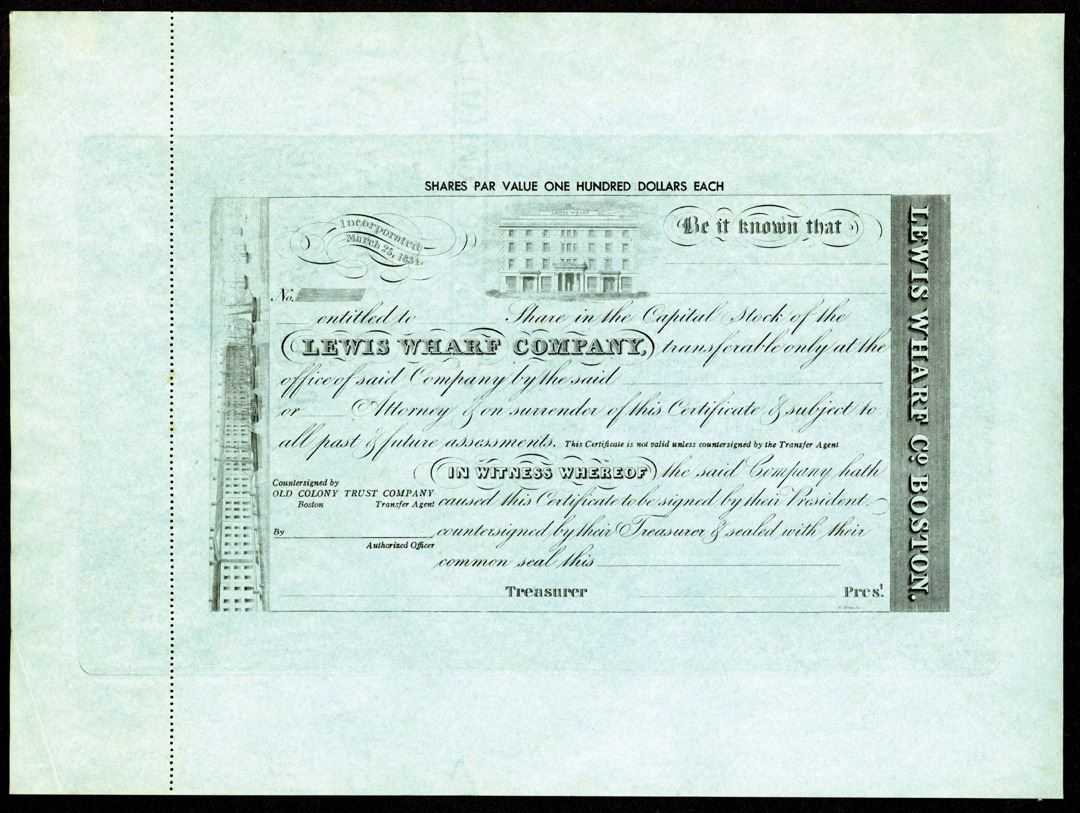 SHARES PAR VALUE ONE HUNDRED DOLLARS EACH
Incorporated
March 25, 1834.
LEWIS WHARF
Be it known that
No.
entitled to Share in the Capital Stock of the
LEWIS WHARF COMPANY, transferable only at the
office of said Company by the said
or Attorney & on surrender of this Certificate & subject to
all past & future assessments. This Certificate is not valid unless countersigned by the Transfer Agent
IN WITNESS WHEREOF the said Company hath
Countersigned by
OLD COLONY TRUST COMPANY
Boston Transfer Agent
caused this Certificate to be signed by their President
By
Authorized Officer
countersigned by their Treasurer & sealed with their
common seal this
Treasurer Prest.
LEWIS WHARF Co. BOSTON.